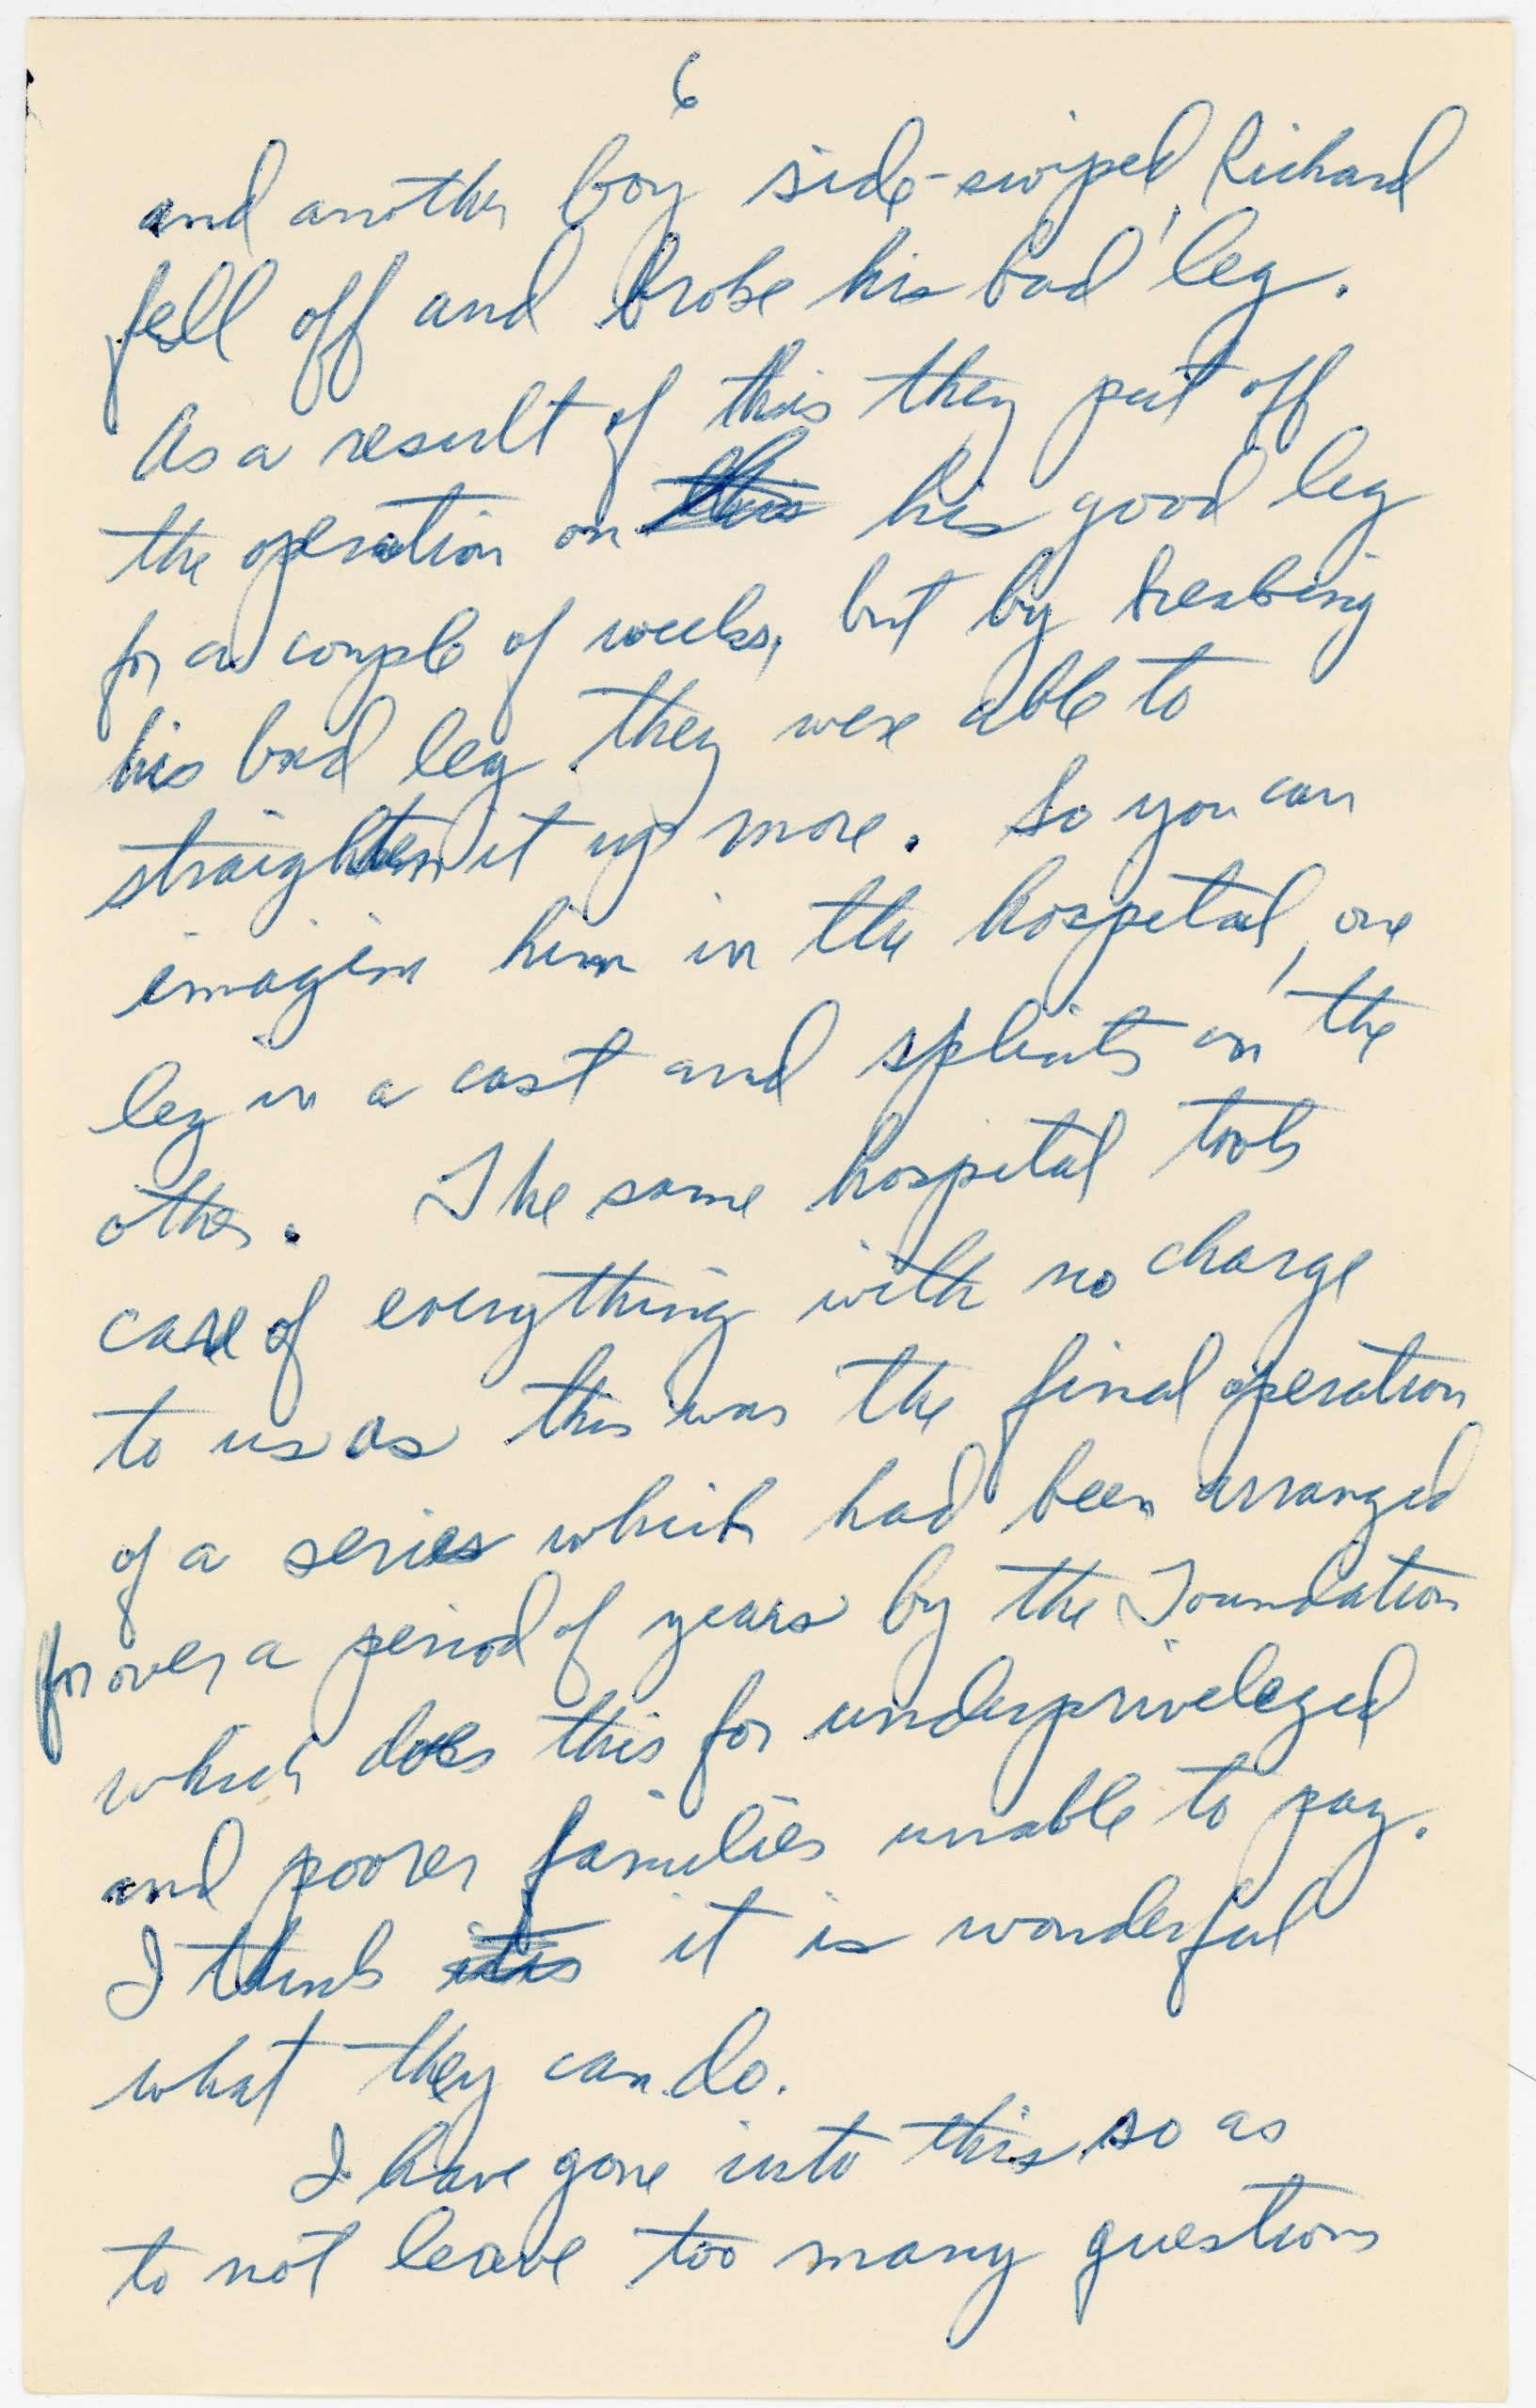 6
and another boy side-swiped, Richard
fell off and broke his bad leg.
As a result of this they put off
the operation on this his good leg
for a couple of weeks, but by breaking
his bad leg they were able to
straighten it up more. So you can
imagine him in the hospital, one
leg in a cast and splints on the
other. The same hospital took
care of everything with no charge
to us as this was the final operation
of a series which had been arranged
for over a period of years by the Foundation
which does this for underpriveleged
and poorer families unable to pay.
I think itis it is wonderful
what they can do.
I have gone into this so as
to not leave too many questions